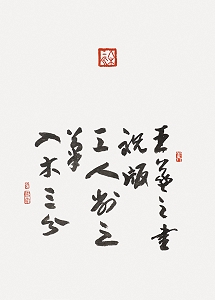 王羲之書
祝版
工人削之
筆
入木三分